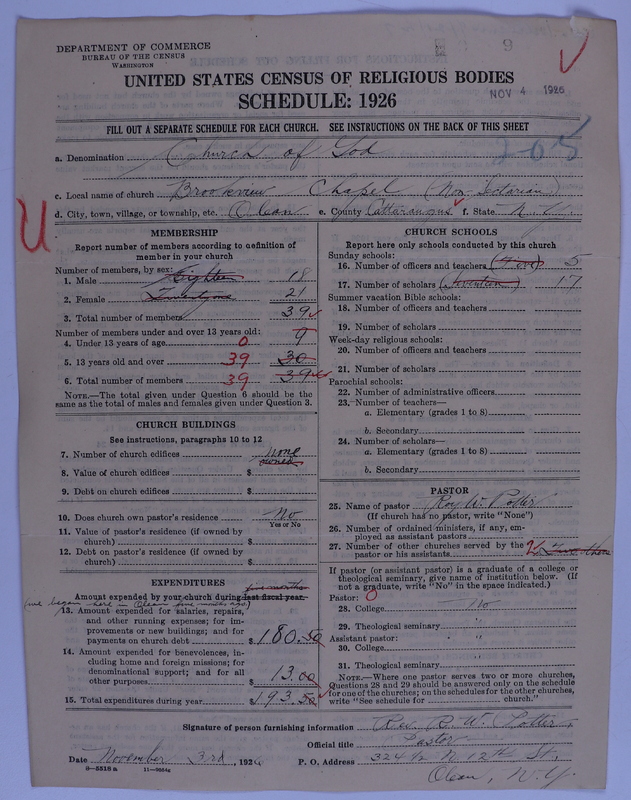 DEPARTMENT OF COMMERCE
BUREAU OF THE CENSUS
WASHINGTON
9
UNITED STATES CENSUS OF RELIGIOUS BODIES
SCHEDULE: 1926
NOV 4 1926
FILL OUT A SEPARATE SCHEDULE FOR EACH CHURCH. SEE INSTRUCTIONS ON THE BACK OF THIS SHEET
a. Denomination Church of God
205
c. Local name of church Brookview Chapel (Non Sectarian)
d. City, town, village, or township, etc. Olean e. County Cattaraugus f. State N.Y.
U
MEMBERSHIP
Report number of members according to definition of
member in your church
Number of members, by sex:
1. Male Eighteen 18
2. Female Twentyone 21
3. Total number of members 39
Number of members under and over 13 years old:
4. Under 13 years of age 0 9
5. 13 years old and over 39 30
6. Total number of members 39 39
NOTE.—The total given under Question 6 should be
same as the total of males and females given under Question 3.
CHURCH BUILDINGS
See instructions, paragraphs 10 to 12
7. Number of church edifices none owned
8. Value of church edifices $
9. Debt on church edifices $
10. Does church own pastor's residence No
Yes or No
11. Value of pastor's residence (if owned by
church) $
12. Debt on pastor's residence (if owned by
church) $
EXPENDITURES
five months
Amount expended by your church during last fiscal year.
(we began here in Olean five months ago)
13. Amount expended for salaries, repairs,
and other running expenses; for im-
provements or new buildings; and for
payments on church debt $ 180.50
14. Amount expended for benevolences, in-
cluding home and foreign missions; for
denominational support; and for all
other purposes 13.00
15. Total expenditures during year $ 193.50
CHURCH SCHOOLS
Report here only schools conducted by this church
Sunday schools:
16. Number of officers and teachers (Five) 5
17. Number of scholars (Seventeen) 17
Summer vacation Bible schools:
18. Number of officers and teachers
19. Number of scholars
Week-day religious schools:
20. Number of officers and teachers
21. Number of scholars
Parochial schools:
22. Number of administrative officers
23. Number of teachers—
a. Elementary (grades 1 to 8)
b. Secondary
24. Number of scholars—
a. Elementary (grades 1 to 8)
b. Secondary
PASTOR
25. Name of pastor Roy W. Potter
(If church has no pastor, write "None")
26. Number of ordained ministers, if any, em-
ployed as assistant pastors
27. Number of other churches served by the
pastor or his assistants 2
If pastor (or assistant pastor) is a graduate of a college or
theological seminary, give name of institution below. (If
not a graduate, write "No" in the space indicated.)
Pastor: 0
28. College no
29. Theological seminary "
Assistant pastor:
30. College "
31. Theological seminary "
NOTE.—Where one pastor serves two or more churches,
Questions 28 and 29 should be answered only on the schedule
for one of the churches; on the schedules for the other churches,
write "See schedule for church."
Signature of person furnishing information Rev. R. W. Potter,
Official title Pastor
Date November 3rd, 1926 P. O. Address 324½ N 12th St.,
8-5518a 11-9664g
Olean, N.Y.